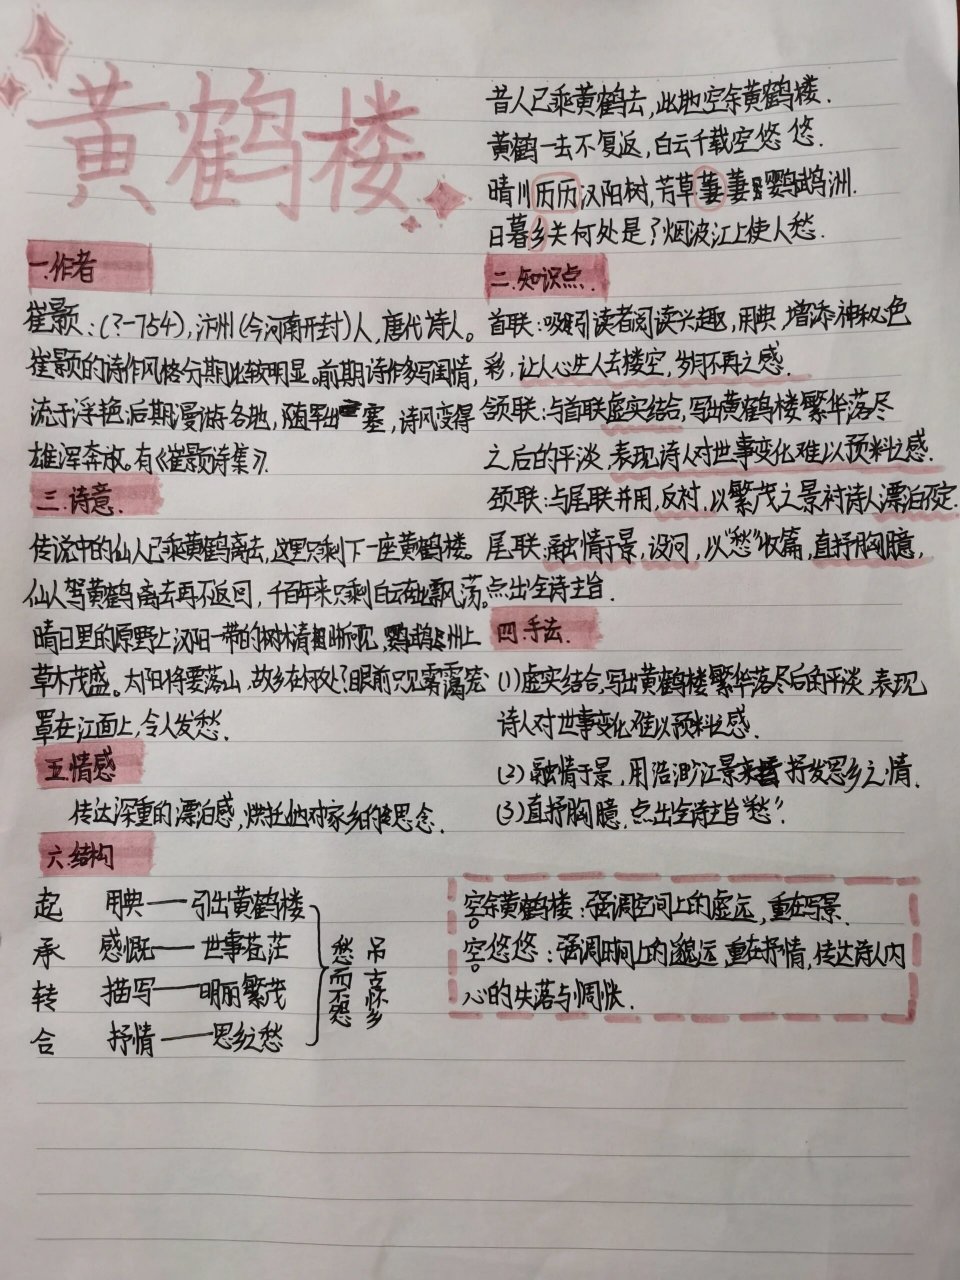 黄鹤楼
昔人已乘黄鹤去，此地空余黄鹤楼．
黄鹤一去不复返，白云千载空悠悠．
晴川历历汉阳树，芳草萋萋鹦鹉洲．
日暮乡关何处是？烟波江上使人愁．
一.作者
崔颢：（?-754），汴州（今河南开封）人，唐代诗人。
崔颢的诗作风格分期比较明显。前期诗作多写闺情，
流于浮艳；后期漫游各地，随军出塞，诗风变得
雄浑奔放。有《崔颢诗集》．
二.知识点
首联：吸引读者阅读兴趣，用典，增添神秘色
彩，让人心生人去楼空，岁月不再之感．
颔联：与首联虚实结合，写出黄鹤楼繁华落尽
之后的平淡，表现诗人对世事变化难以预料之感．
颈联：与尾联并用，反衬，以繁茂之景衬诗人漂泊不定．
尾联：融情于景，设问，以“愁”收篇，直抒胸臆，
点出全诗主旨．
三.诗意．
传说中的仙人已乘黄鹤离去，这里只剩下一座黄鹤楼。
仙人驾黄鹤离去再不返回，千百年来只剩白云在此飘荡。
晴日里的原野上汉阳一带的树木清晰可见，鹦鹉洲上
草木茂盛。太阳将要落山，故乡在何处？眼前只见雾霭笼
罩在江面上，令人发愁．
四.手法．
（1）虚实结合，写出黄鹤楼繁华落尽后的平淡，表现
诗人对世事变化难以预料之感．
（2）融情于景，用沿途江景来抒发思乡之情．
（3）直抒胸臆，点出全诗主旨“愁”．
五.情感
传达深重的漂泊感，烘托他对家乡的思念．
六.结构
起 用典——引出黄鹤楼
承 感慨——世事苍茫
转 描写——明丽繁茂
合 抒情——思乡之愁
愁而不怨
吊古怀乡
空余黄鹤楼：强调空间上的虚远，重在写景．
空悠悠：强调时间上的邈远，重在抒情，传达诗人内
心的失落与惆怅．